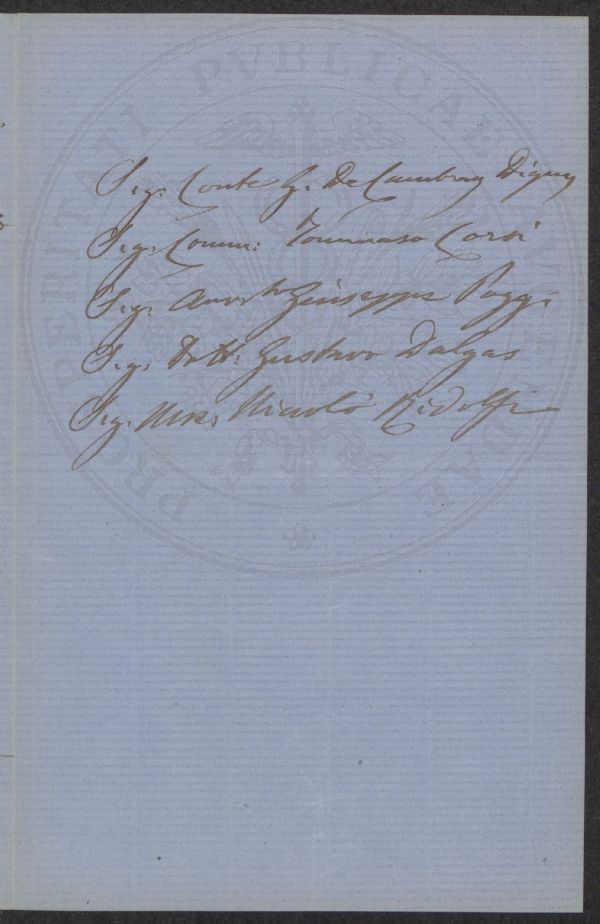 PROSPERITATI PUBLICAE AUGENDAE
Sig. Conte G. De Cambray Digny
Sig. Comm: Tommaso Corsi
Sig. Avv.to Giuseppe Poggi
Sig. Dott: Gustavo Dalgas
Sig. Niccolò Ridolfi